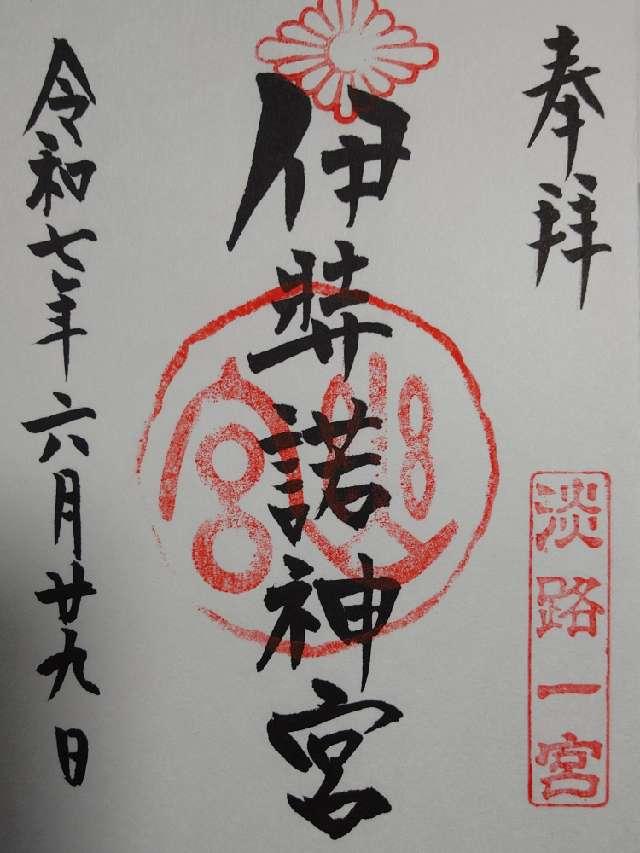 奉拝
淡路一宮
伊弉諾神宮
令和七年六月廿九日